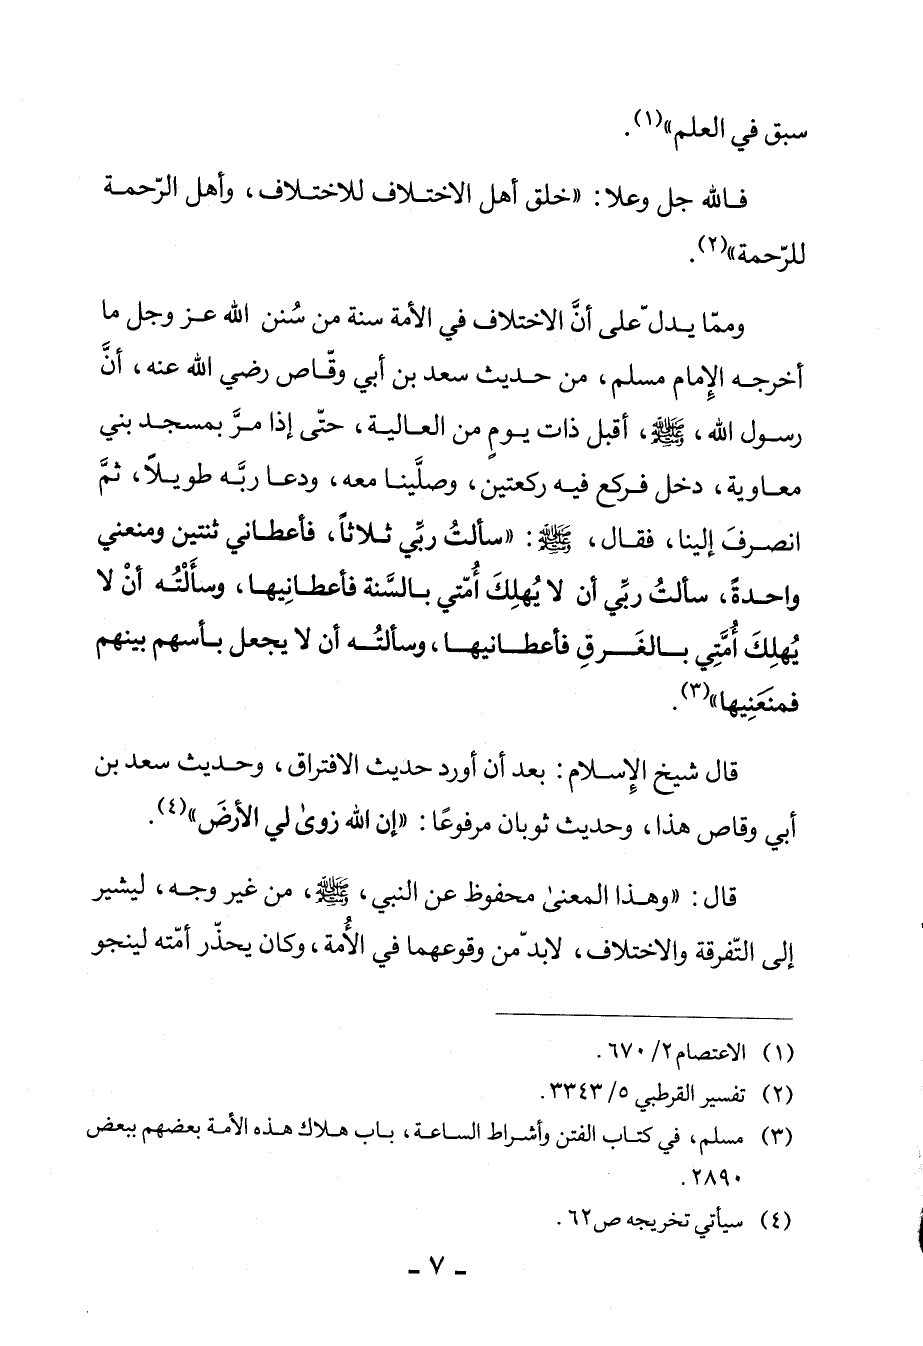 سبق في العلم»(١).
فالله جل وعلا: «خلق أهل الاختلاف للاختلاف، وأهل الرّحمة
للرّحمة»(٢).
وممّا يدلّ على أنَّ الاختلاف في الأمة سنة من سُنن الله عز وجل ما
أخرجه الإمام مسلم، من حديث سعد بن أبي وقّاص رضي الله عنه، أنَّ
رسول الله، ﷺ، أقبل ذات يومٍ من العالية، حتّى إذا مرَّ بمسجد بني
معاوية، دخل فركع فيه ركعتين، وصلَّينا معه، ودعا ربَّه طويلاً، ثمَّ
انصرفَ إلينا، فقال، ﷺ: «سألتُ ربِّي ثلاثاً، فأعطاني ثنتين ومنعني
واحدةً، سألتُ ربِّي أن لا يُهلِكَ أُمّتي بالسَّنة فأعطانِيها، وسأَلْتُه أنْ لا
يُهلِكَ أُمَّتِي بالغَرقِ فأعطانيها، وسألتُه أن لا يجعل بأسهم بينهم
فمنَعَنِيها»(٣).
قال شيخ الإِسلام: بعد أن أورد حديث الافتراق، وحديث سعد بن
أبي وقاص هذا، وحديث ثوبان مرفوعًا: «إن الله زوىٰ لي الأرضَ»(٤).
قال: «وهذا المعنىٰ محفوظ عن النبي، ﷺ، من غير وجه، ليشير
إلى التّفرقة والاختلاف، لابدّ من وقوعهما في الأُمة، وكان يحذّر أمّته لينجو
(١) الاعتصام ٢/ ٦٧٠.
(٢) تفسير القرطبي ٥/ ٣٣٤٣.
(٣) مسلم، في كتاب الفتن وأشراط الساعة، باب هلاك هذه الأمة بعضهم ببعض
٢٨٩٠.
(٤) سيأتي تخريجه ص٦٢.
- ٧ -